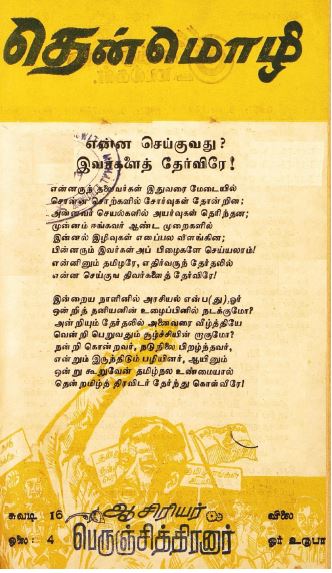 தென்மொழி
என்ன செய்குவது?
இவர்களைத் தேர்விரே!
என்னருந் தலைவர்கள் இதுவரை மேடையில்
சொன்ன சொற்களில் சோர்வுகள் தோன்றின;
அன்னவர் செயல்களில் அயர்வுகள் தெரிந்தன;
முன்னம் ஈங்கவர் ஆண்ட முறைகளில்
இன்னல் இழிவுகள் எனைபல விளங்கின;
பின்னரும் இவர்கள் அப் பிழைகளே செய்யலாம்!
என்னினும் தமிழரே, எதிர்வருந் தேர்தலில்
என்ன செய்குவ திவர்களைத் தேர்விரே!
இன்றைய நாளினில் அரசியல் என்ப(து),ஓர்
ஒன்றித் தனியனின் உழைப்பினில் நடக்குமோ?
அன்றியும் தேர்தலில் அனைவரை வீழ்த்தியே
வென்றி பெறுவதும் சூழ்ச்சியின் ஈகுமோ?
நன்றி கொன்றவர், நடுநிலை பிறழ்ந்தவர்,
என்றும் இருந்திடும் பழியினர், ஆயினும்
ஒன்று கூறுவேன் தமிழ்நல உண்மையால்
தென்றமிழ்த் திரவிடர் தேர்ந்து கொள்வீரே!
சுவடி 16
ஆசிரியர்
விலை
ஓலை: 4
பெருஞ்சித்திரனார்
ஓர் உரூபா